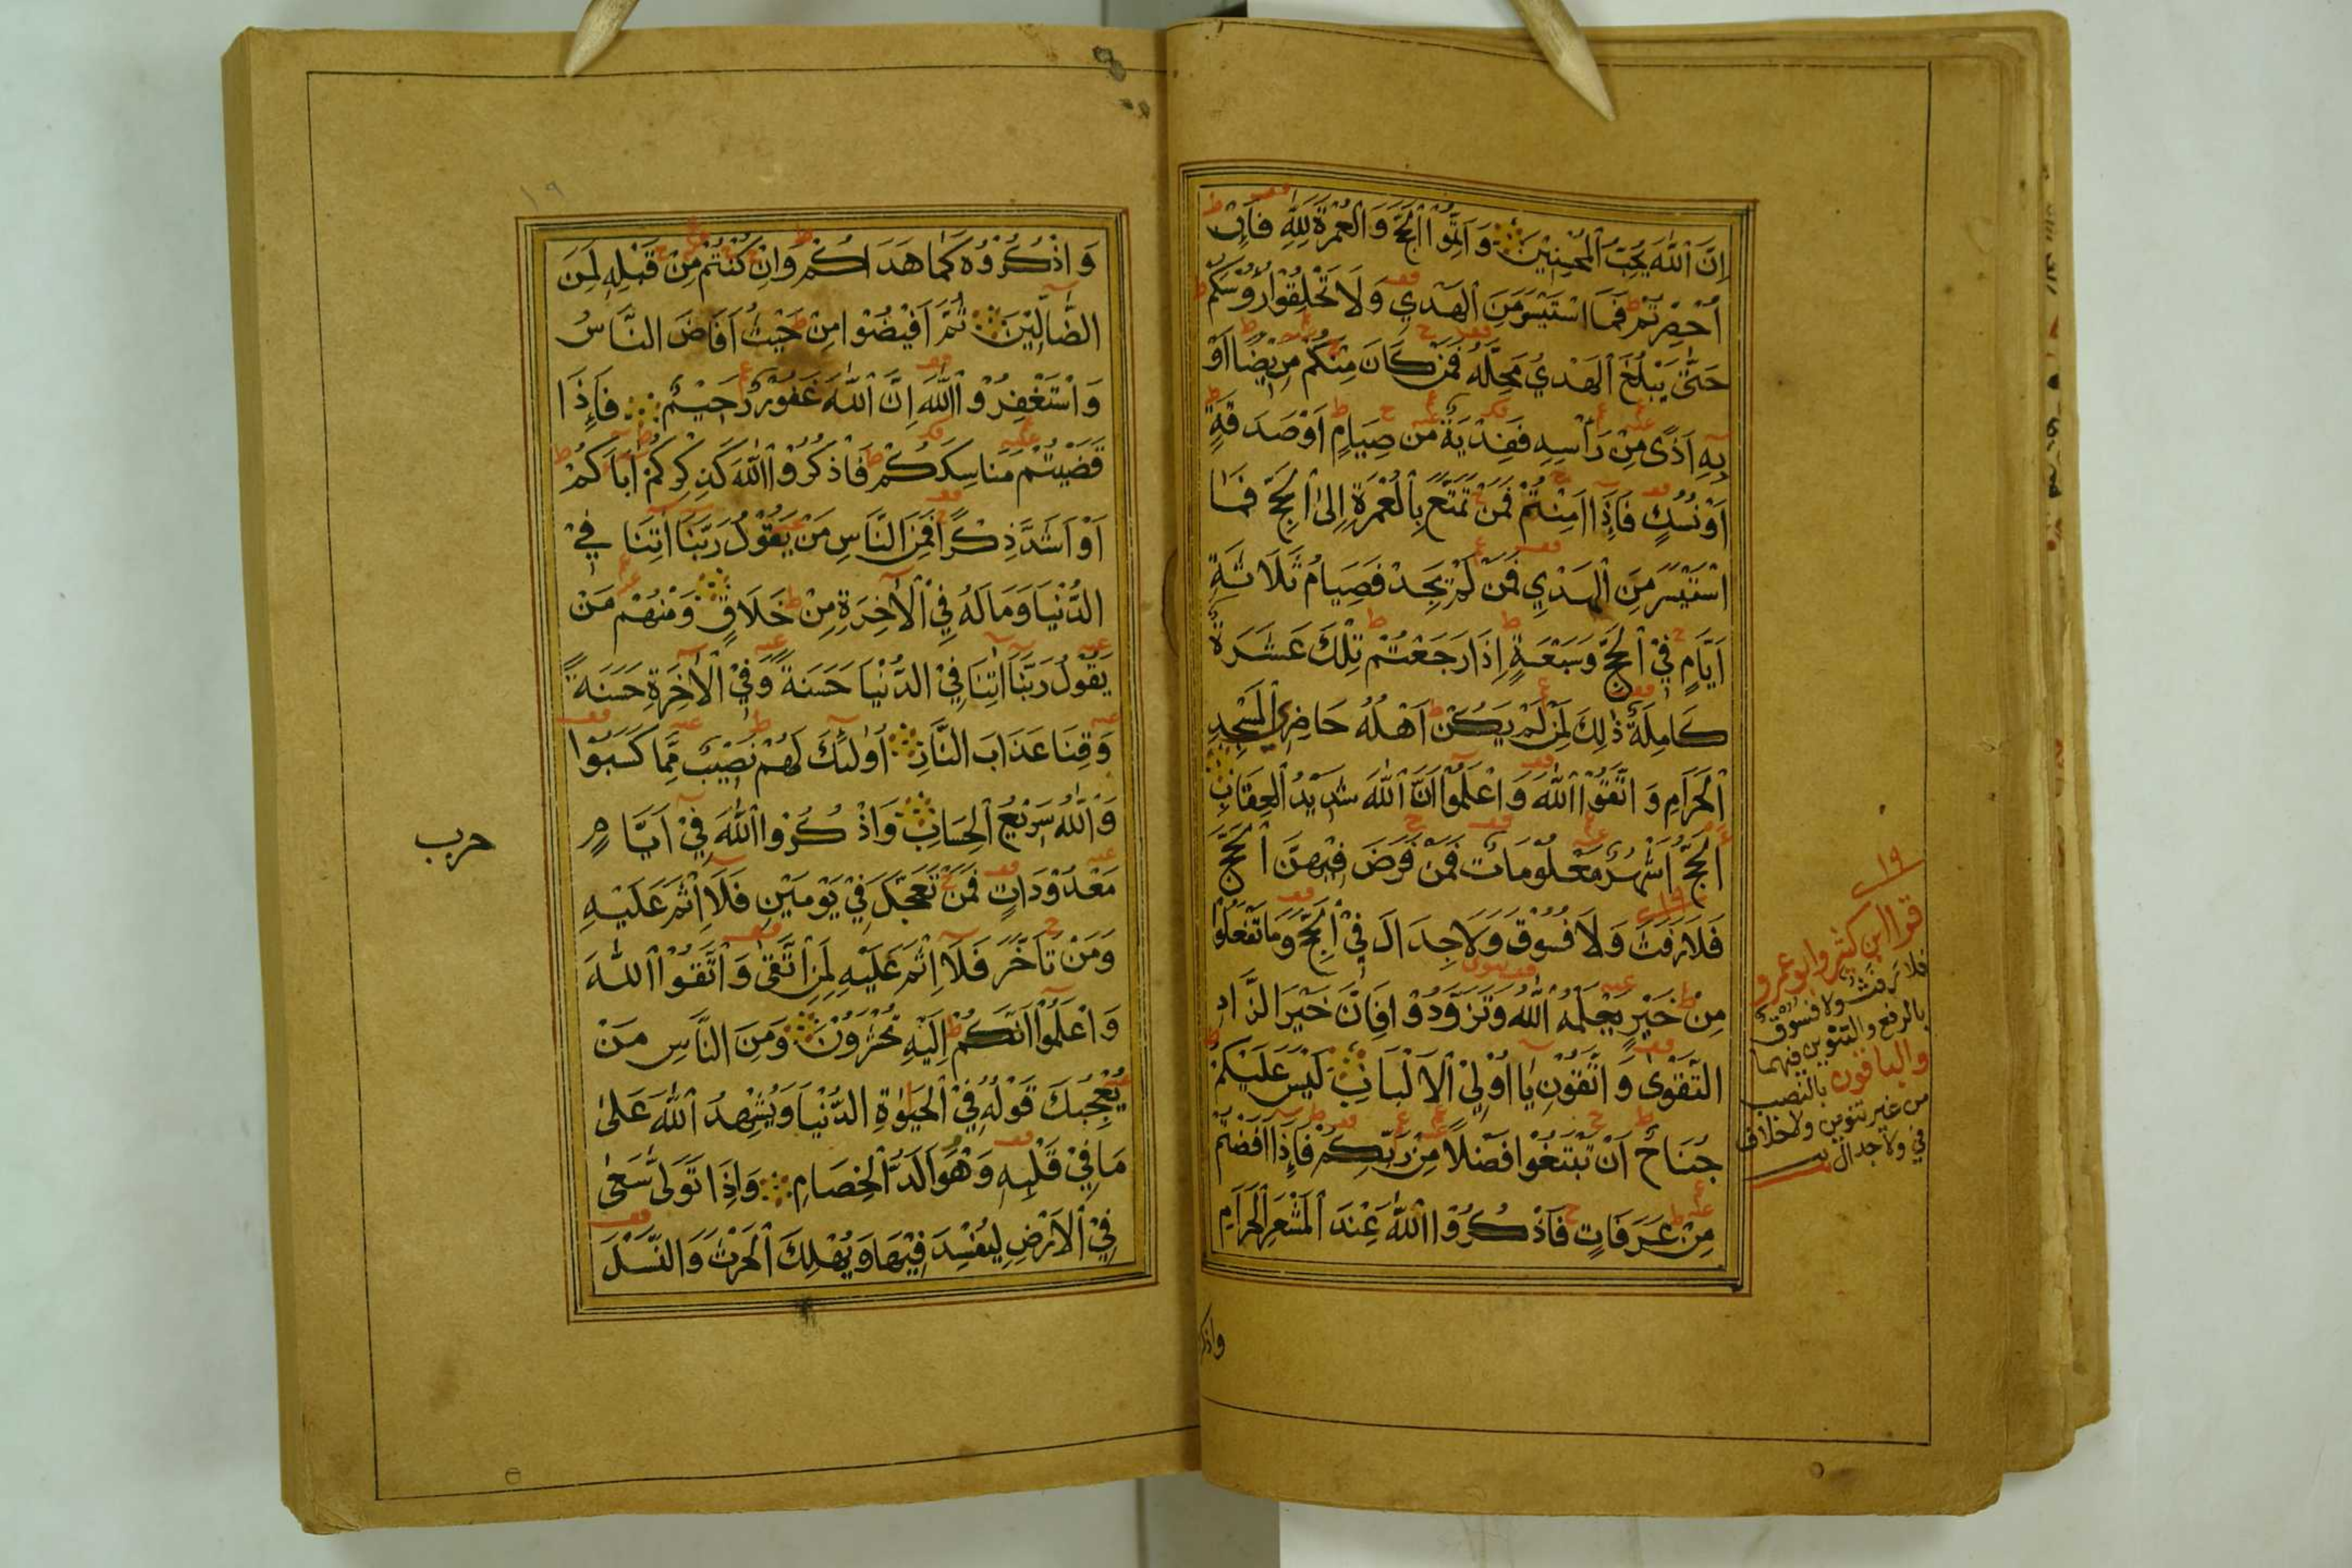 اِنَّ اللّٰهَ يُحِبُّ الْمُحْسِنِيْنَ وَاَتِمُّوا الْحَجَّ وَالْعُمْرَةَ لِلّٰهِ فَاِنْ
اُحْصِرْتُمْ فَمَا اسْتَيْسَرَ مِنَ الْهَدْيِ وَلَا تَحْلِقُوْا رُؤُسَكُمْ
حَتّٰى يَبْلُغَ الْهَدْيُ مَحِلَّهُ فَمَنْ كَانَ مِنْكُمْ مَرِيْضًا اَوْ
بِهِ اَذًى مِنْ رَأْسِهِ فَفِدْيَةٌ مِنْ صِيَامٍ اَوْ صَدَقَةٍ
اَوْ نُسُكٍ فَاِذَا اَمِنْتُمْ فَمَنْ تَمَتَّعَ بِالْعُمْرَةِ اِلَى الْحَجِّ فَمَا
اسْتَيْسَرَ مِنَ الْهَدْيِ فَمَنْ لَمْ يَجِدْ فَصِيَامُ ثَلَاثَةِ
اَيَّامٍ فِي الْحَجِّ وَسَبْعَةٍ اِذَا رَجَعْتُمْ تِلْكَ عَشَرَةٌ
كَامِلَةٌ ذٰلِكَ لِمَنْ لَمْ يَكُنْ اَهْلُهُ حَاضِرِي الْمَسْجِدِ
الْحَرَامِ وَاتَّقُوا اللّٰهَ وَاعْلَمُوْا اَنَّ اللّٰهَ شَدِيْدُ الْعِقَابِ
اَلْحَجُّ اَشْهُرٌ مَعْلُوْمَاتٌ فَمَنْ فَرَضَ فِيْهِنَّ الْحَجَّ
فَلَا رَفَثَ وَلَا فُسُوْقَ وَلَا جِدَالَ فِي الْحَجِّ وَمَا تَفْعَلُوْا
مِنْ خَيْرٍ يَعْلَمْهُ اللّٰهُ وَتَزَوَّدُوْا فَاِنَّ خَيْرَ الزَّادِ
التَّقْوٰى وَاتَّقُوْنِ يَا اُوْلِي الْاَلْبَابِ لَيْسَ عَلَيْكُمْ
جُنَاحٌ اَنْ تَبْتَغُوْا فَضْلًا مِنْ رَبِّكُمْ فَاِذَا اَفَضْتُمْ
مِنْ عَرَفَاتٍ فَاذْكُرُوْا اللّٰهَ عِنْدَ الْمَشْعَرِ الْحَرَامِ
واذكر
١٩
قرا ابن كثير وابو عمرو
فلا رفث ولا فسوق
بالرفع والتنوين فيهما
والباقون بالنصب
من غير تنوين ولا خلاف
في ولا جدال
١٩
وَاذْكُرُوْهُ كَمَا هَدَاكُمْ وَاِنْ كُنْتُمْ مِنْ قَبْلِهِ لَمِنَ
الضَّالِّيْنَ ثُمَّ اَفِيْضُوْا مِنْ حَيْثُ اَفَاضَ النَّاسُ
وَاسْتَغْفِرُوا اللّٰهَ اِنَّ اللّٰهَ غَفُوْرٌ رَحِيْمٌ فَاِذَا
قَضَيْتُمْ مَنَاسِكَكُمْ فَاذْكُرُوا اللّٰهَ كَذِكْرِكُمْ اٰبَاءَكُمْ
اَوْ اَشَدَّ ذِكْرًا فَمِنَ النَّاسِ مَنْ يَقُوْلُ رَبَّنَا اٰتِنَا فِي
الدُّنْيَا وَمَا لَهُ فِي الْاٰخِرَةِ مِنْ خَلَاقٍ وَمِنْهُمْ مَنْ
يَقُوْلُ رَبَّنَا اٰتِنَا فِي الدُّنْيَا حَسَنَةً وَفِي الْاٰخِرَةِ حَسَنَةً
وَقِنَا عَذَابَ النَّارِ اُولٰئِكَ لَهُمْ نَصِيْبٌ مِمَّا كَسَبُوْا
وَاللّٰهُ سَرِيْعُ الْحِسَابِ وَاذْكُرُوا اللّٰهَ فِيْ اَيَّامٍ
مَعْدُوْدَاتٍ فَمَنْ تَعَجَّلَ فِيْ يَوْمَيْنِ فَلَا اِثْمَ عَلَيْهِ
وَمَنْ تَاَخَّرَ فَلَا اِثْمَ عَلَيْهِ لِمَنِ اتَّقٰى وَاتَّقُوْا اللّٰهَ
وَاعْلَمُوْا اَنَّكُمْ اِلَيْهِ تُحْشَرُوْنَ وَمِنَ النَّاسِ مَنْ
يُعْجِبُكَ قَوْلُهُ فِي الْحَيٰوةِ الدُّنْيَا وَيُشْهِدُ اللّٰهَ عَلٰى
مَا فِيْ قَلْبِهِ وَهُوَ اَلَدُّ الْخِصَامِ وَاِذَا تَوَلّٰى سَعٰى
فِي الْاَرْضِ لِيُفْسِدَ فِيْهَا وَيُهْلِكَ الْحَرْثَ وَالنَّسْلَ
حرب